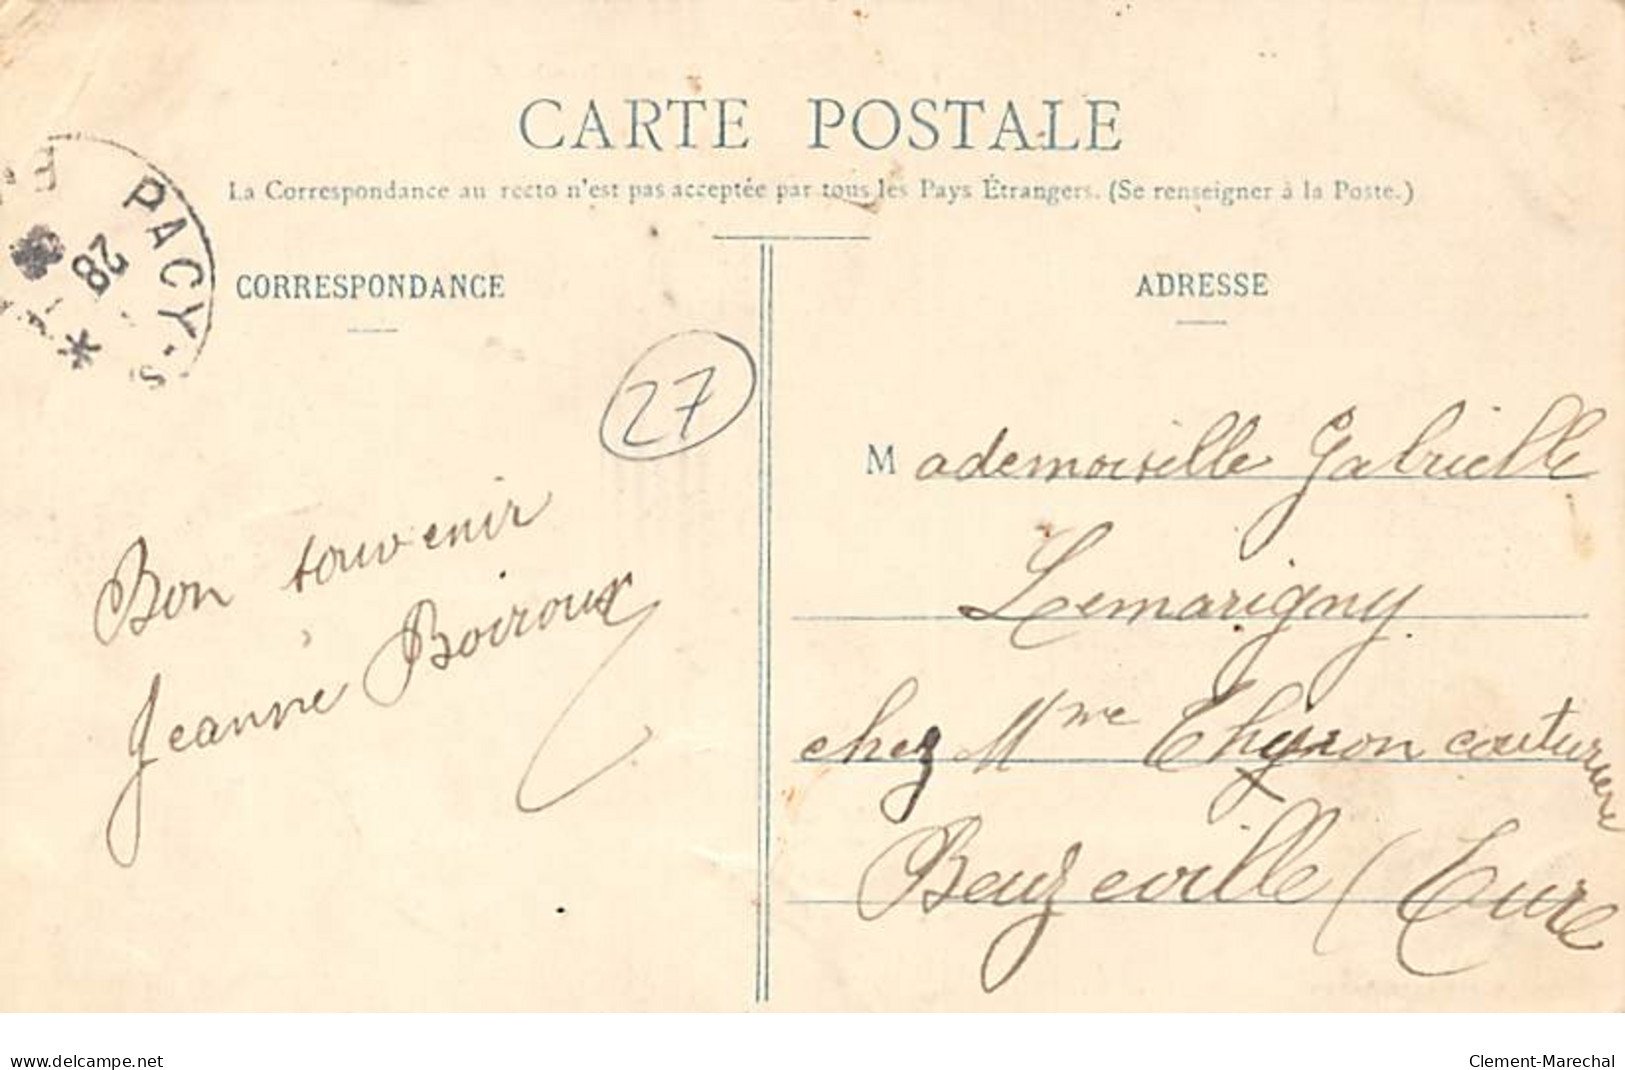 CARTE POSTALE
La Correspondance au recto n'est pas acceptée par tous les Pays Étrangers. (Se renseigner à la Poste.)
PACY-S
28
*
CORRESPONDANCE
27
Bon souvenir
Jeanne Boiroux
ADRESSE
Mademoiselle Gabrielle
Lemarigny
chez Mme Thyron couturière
Beuzeville (Eure
www.delcampe.net
Clement-Marechal